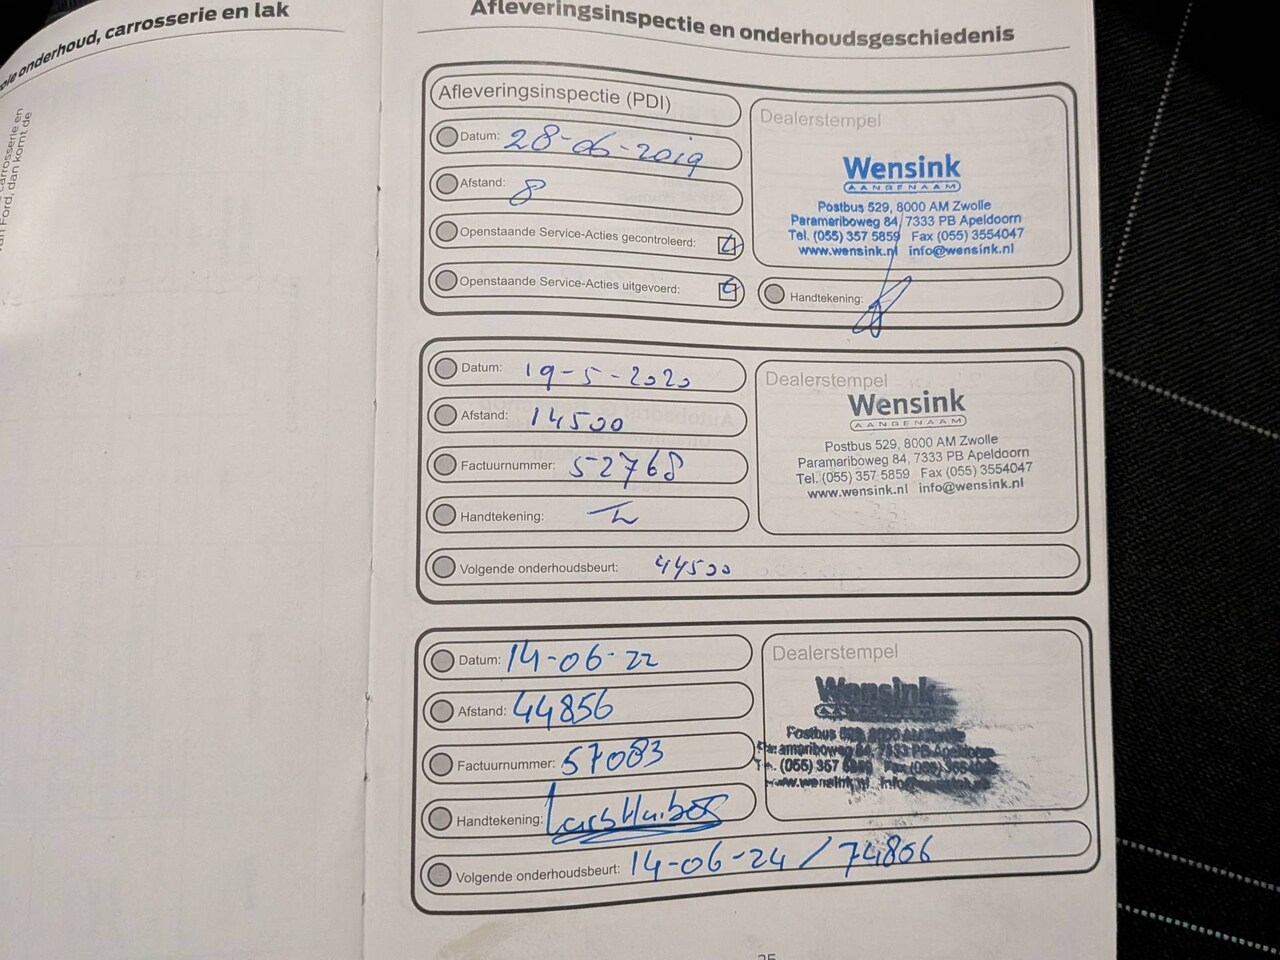 ole onderhoud, carrosserie en lak
carrosserie en
Ford, dan komt de
Afleveringsinspectie en onderhoudsgeschiedenis
Afleveringsinspectie (PDI)
Datum: 28-06-2019
Afstand: 8
Openstaande Service-Acties gecontroleerd:
Openstaande Service-Acties uitgevoerd:
Dealerstempel
Wensink
AANGENAAM
Postbus 529, 8000 AM Zwolle
Paramariboweg 84, 7333 PB Apeldoorn
Tel. (055) 357 5859 Fax (055) 3554047
www.wensink.nl info@wensink.nl
Handtekening:
Datum: 19-5-2020
Afstand: 14500
Factuurnummer: 52768
Handtekening:
Volgende onderhoudsbeurt: 44500
Dealerstempel
Wensink
AANGENAAM
Postbus 529, 8000 AM Zwolle
Paramariboweg 84, 7333 PB Apeldoorn
Tel. (055) 357 5859 Fax (055) 3554047
www.wensink.nl info@wensink.nl
Datum: 14-06-22
Afstand: 44856
Factuurnummer: 57083
Handtekening:
Volgende onderhoudsbeurt: 14-06-24 / 74856
Dealerstempel
Wensink
AANGENAAM
Postbus 529, 8000 AM Zwolle
Paramariboweg 84, 7333 PB Apeldoorn
(055) 357 5859 Fax (055) 3554047
www.wensink.nl info@wensink.nl